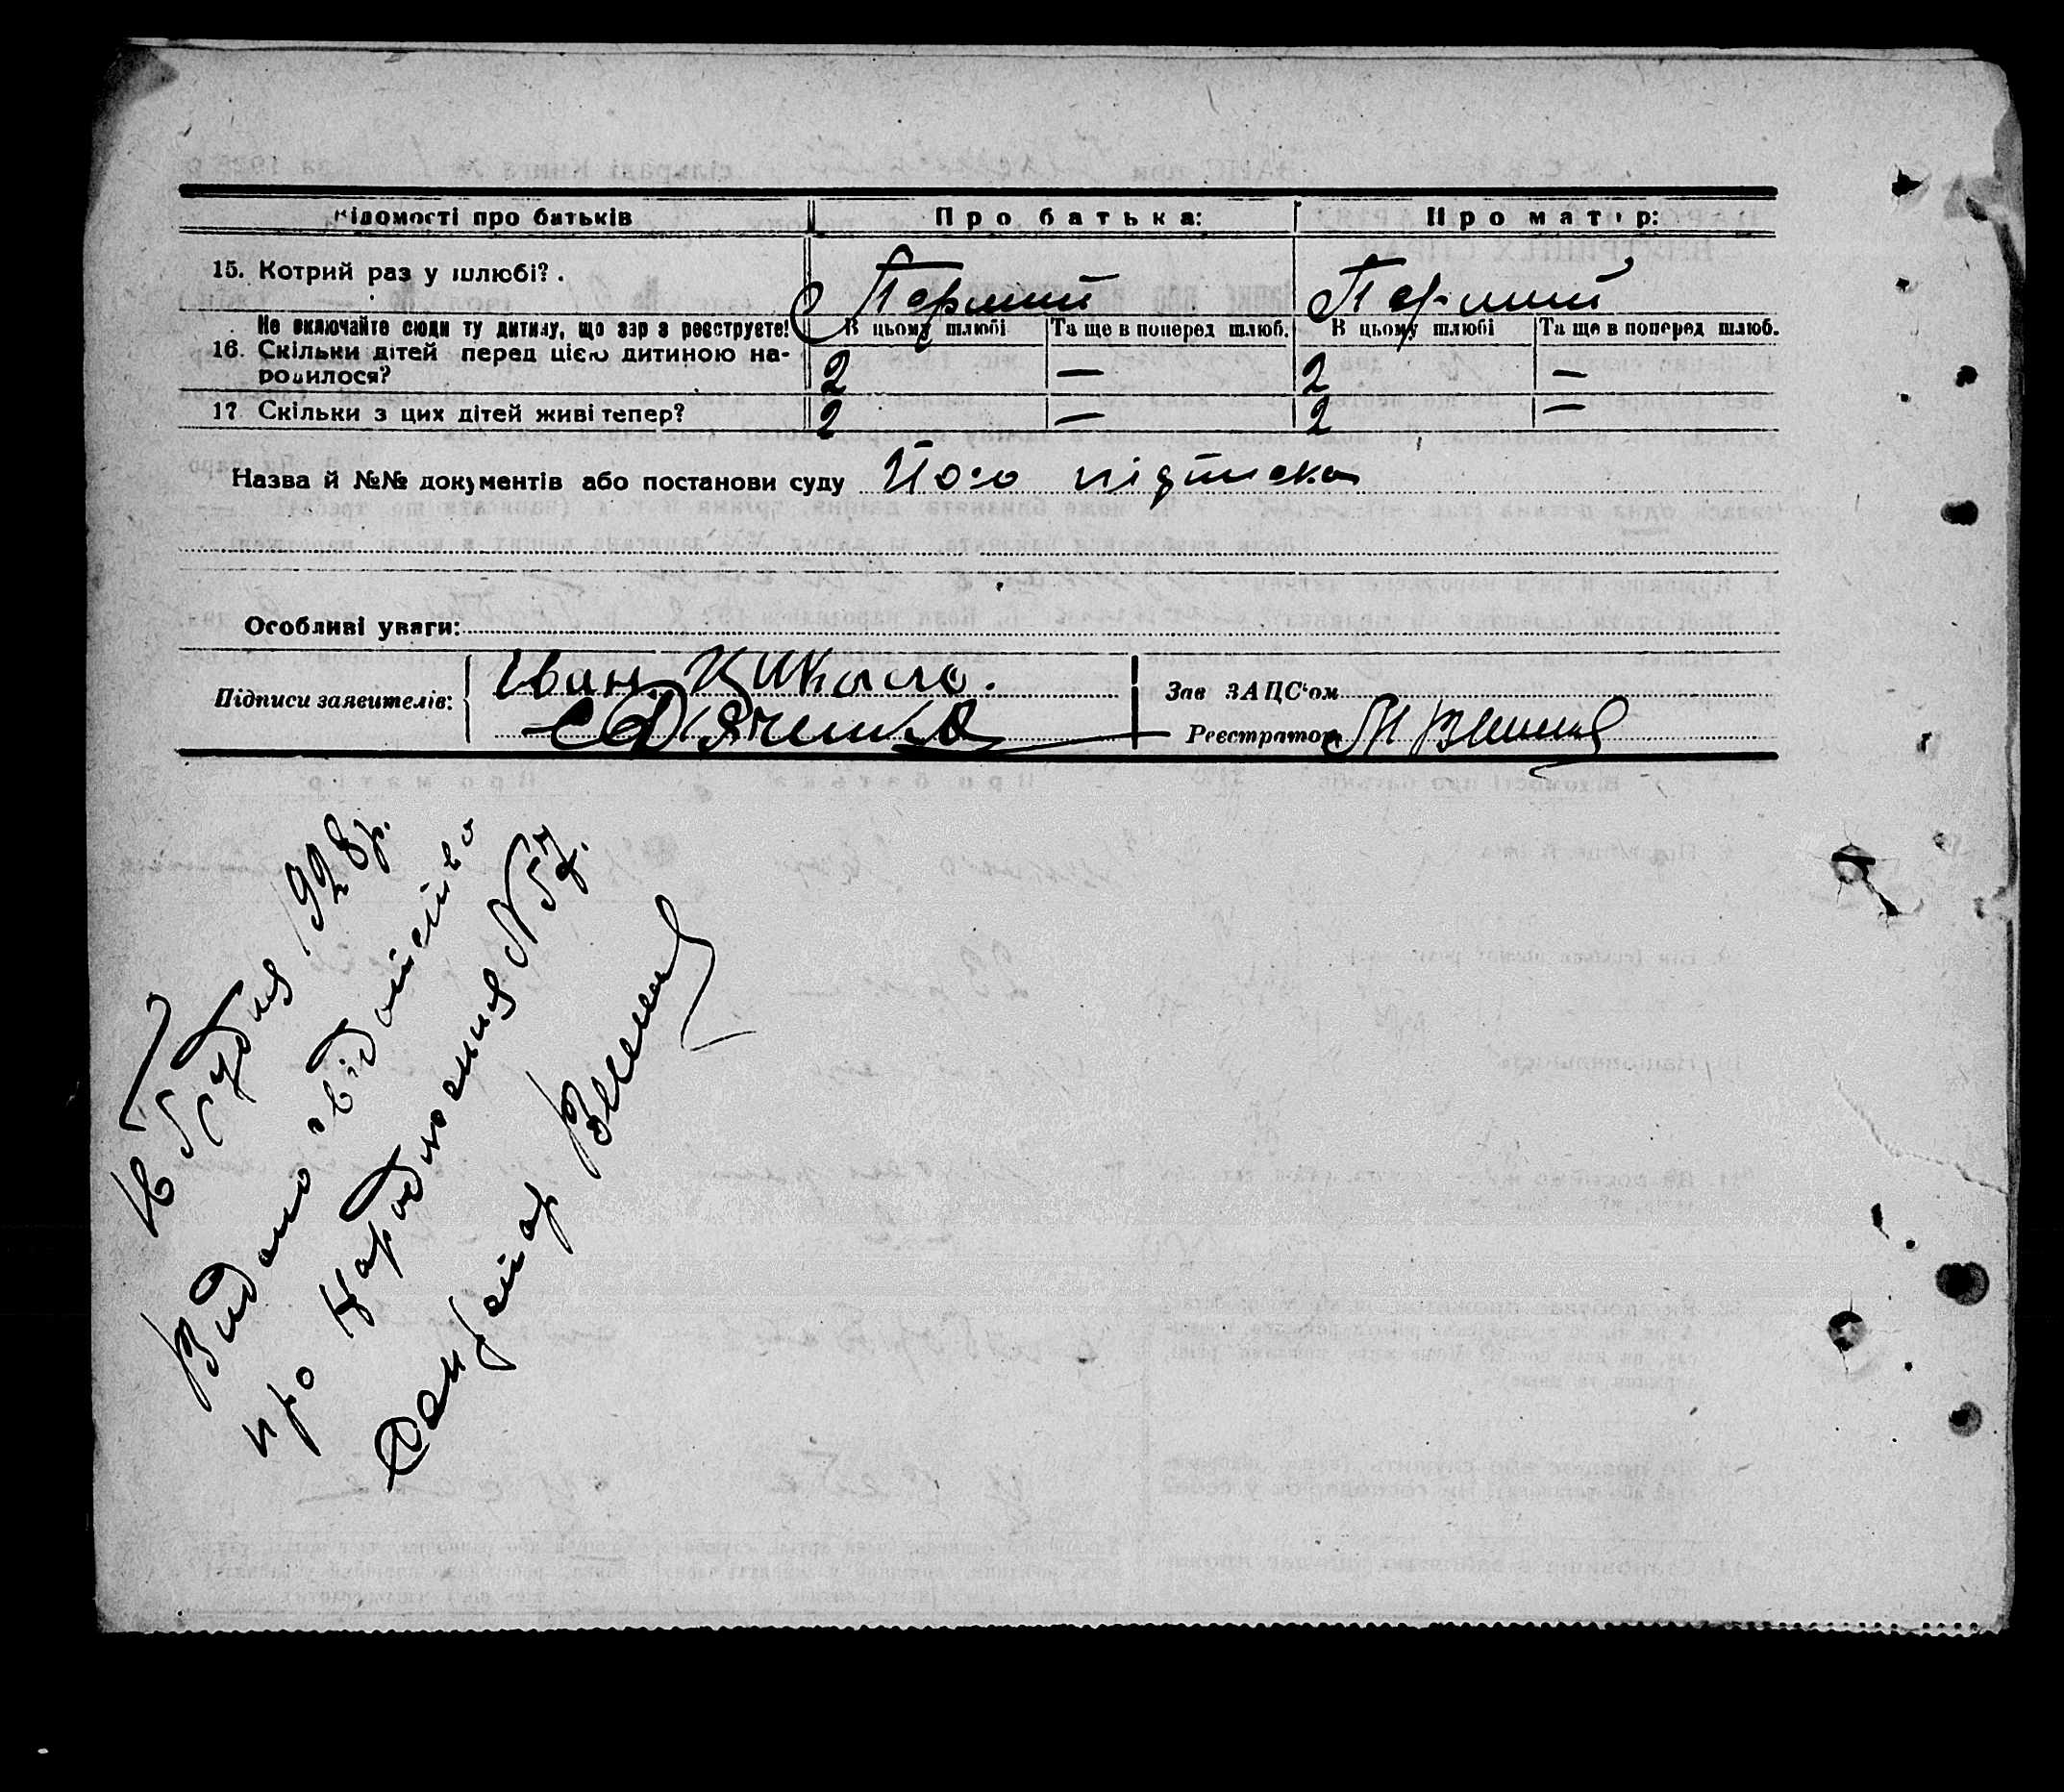 Відомості про батьків Про батька: Про матір:
15. Котрий раз у шлюбі? . Перший Перший
Не включайте сюди ту дитину, що зараз реєструєте! В цьому шлюбі Та ще в поперед шлюб. В цьому шлюбі Та ще в поперед шлюб.
16. Скільки дітей перед цією дитиною на- 2 — 2 —
родилося?
17 Скільки з цих дітей живі тепер? 2 — 2 —
Назва й №№ документів або постанови суду Його підписка
Особливі уваги:
Підписи заявителів: Іван
Зав ЗАЦС'ом
Реєстратор
16 Грудня 1928 р.
Видано свідоцтво
про народження N 57.